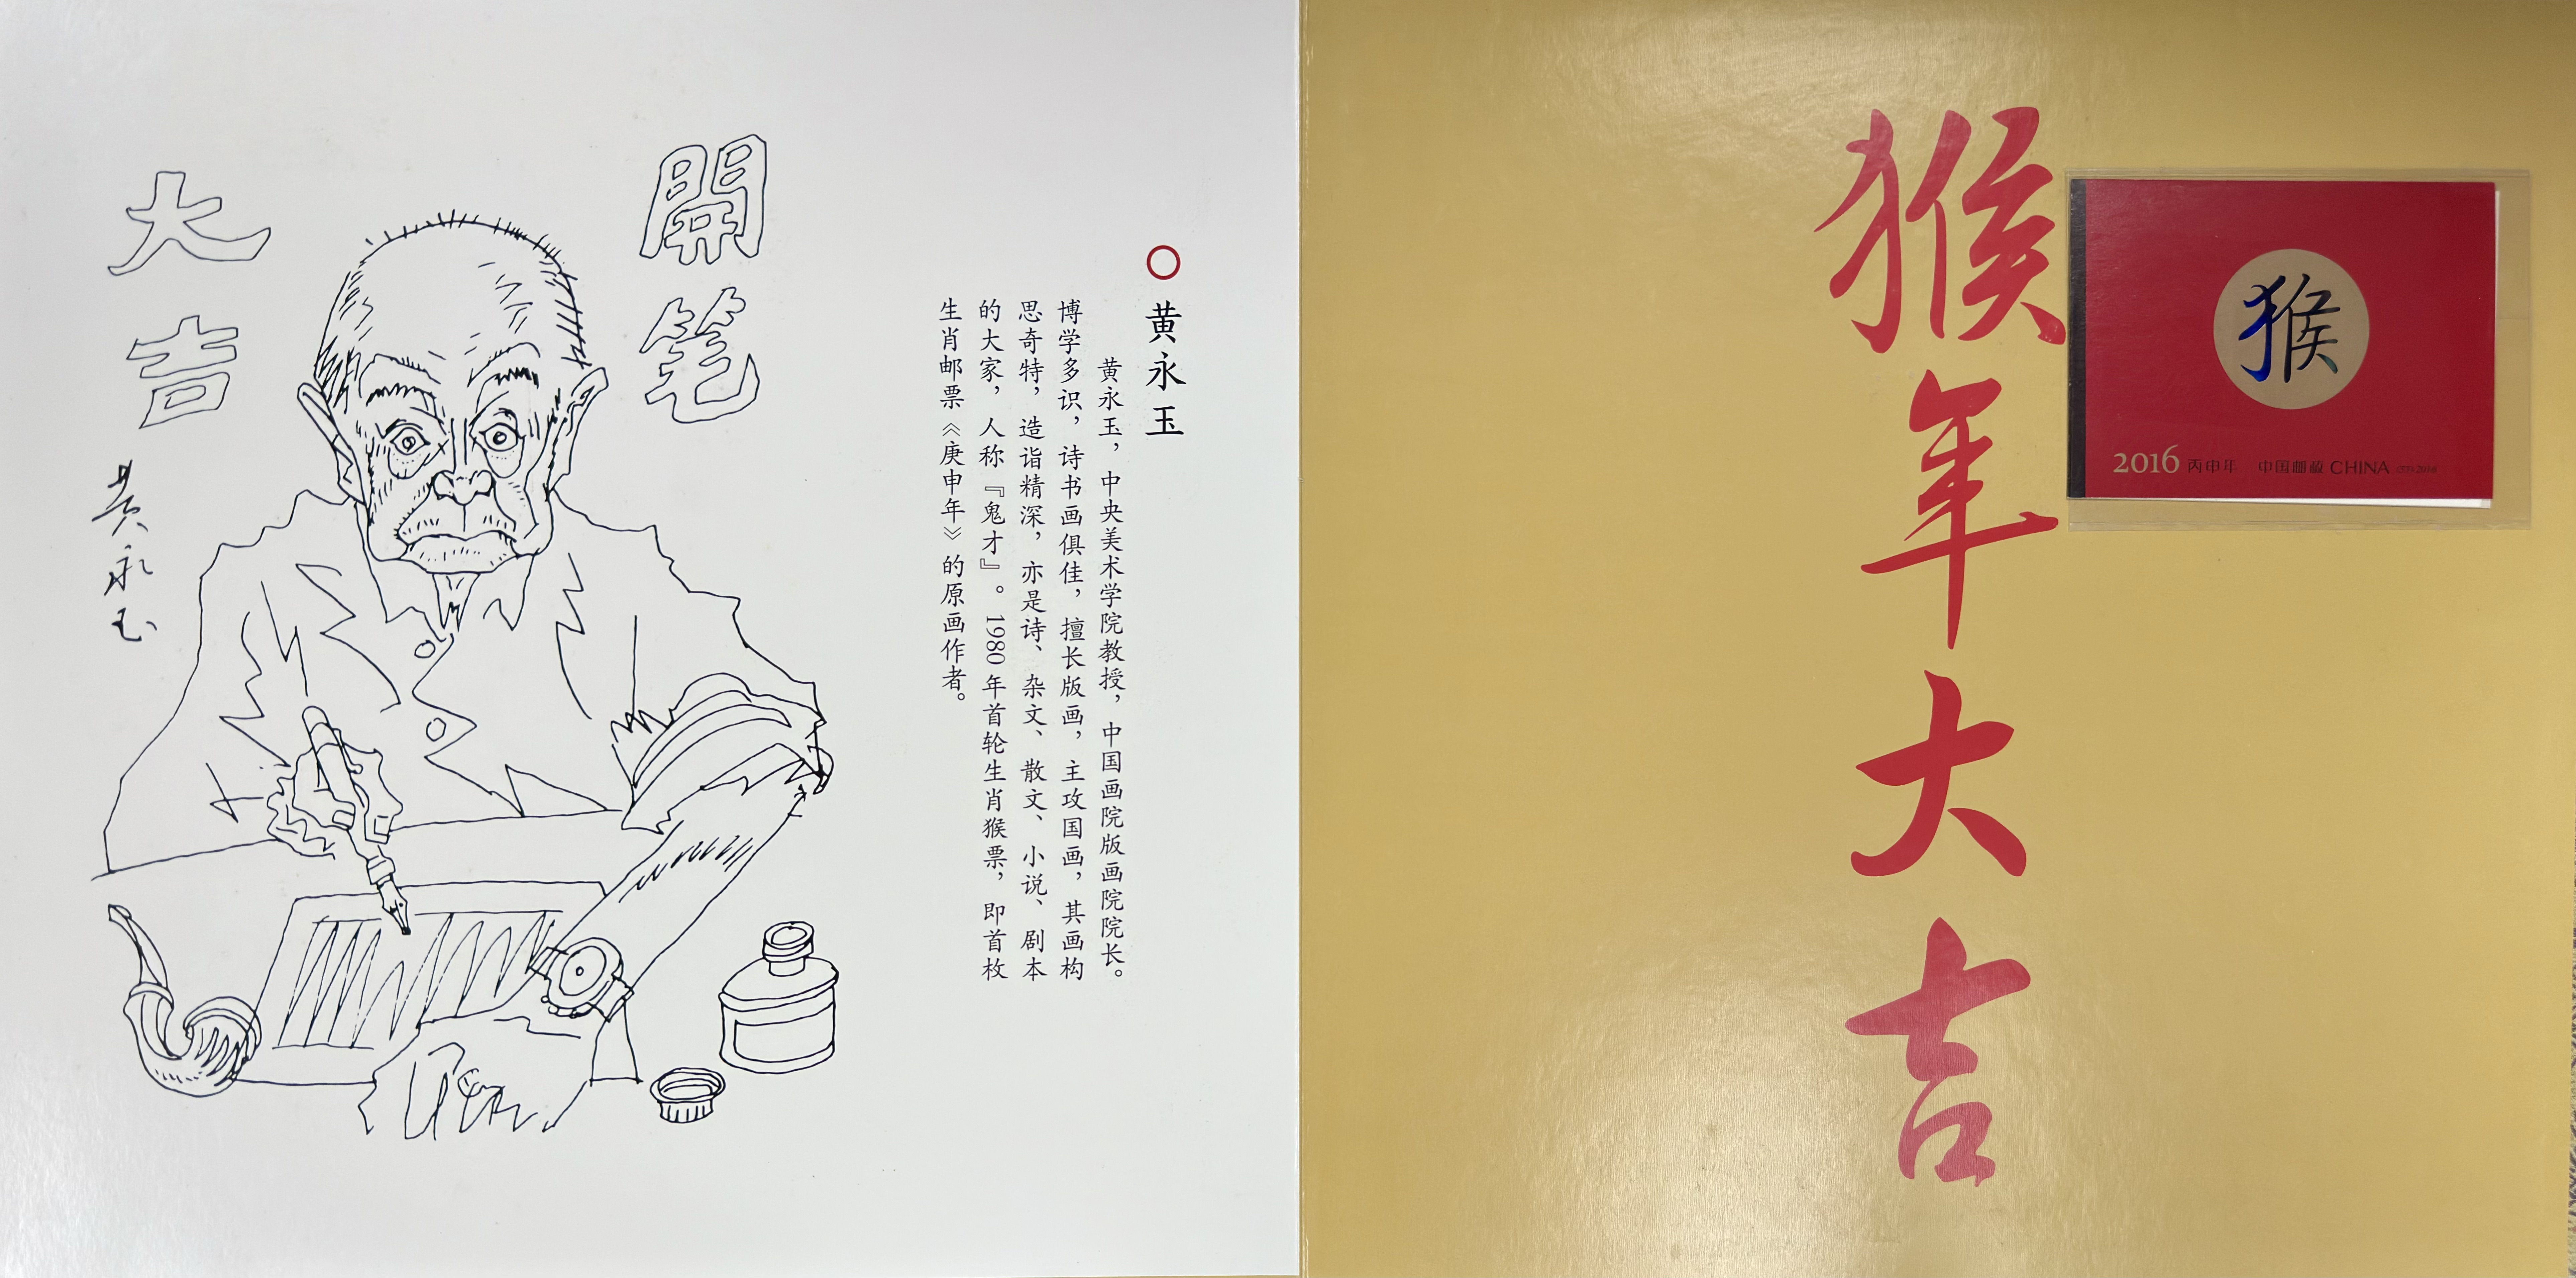 開笔
大吉
黄永玉
○ 黄永玉
黄永玉，中央美术学院教授，中国画院版画院院长。
博学多识，诗书画俱佳，擅长版画，主攻国画，其画构
思奇特，造诣精深，亦是诗、杂文、散文、小说、剧本
的大家，人称『鬼才』。1980年首轮生肖猴票，即首枚
生肖邮票《庚申年》的原画作者。
猴年大吉
猴
2016 丙申年 中国邮政 CHINA